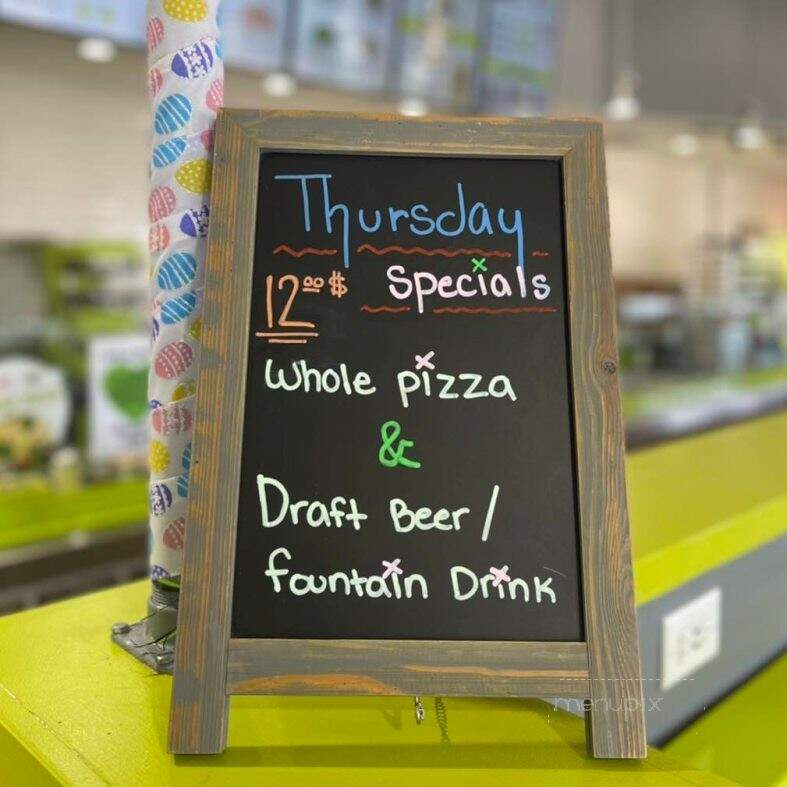 Thursday
12⁰⁰$ Specials
Whole pizza
&
Draft Beer /
fountain Drink
menupix